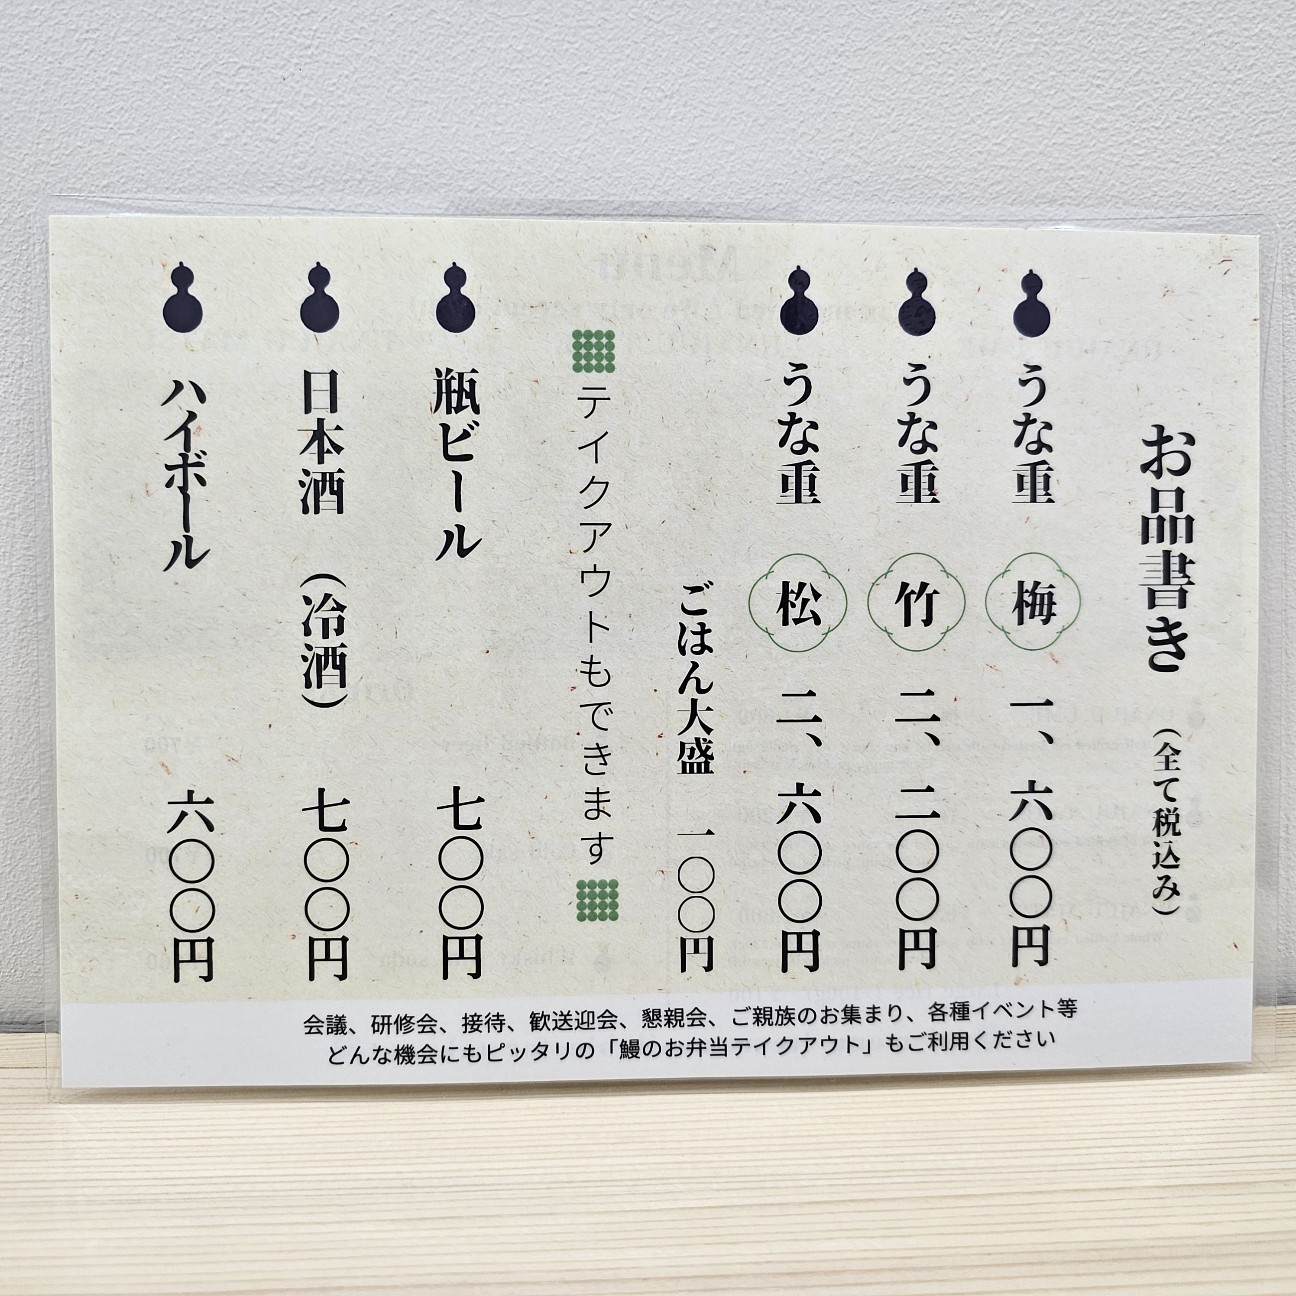 お品書き（全て税込み）
うな重 梅 一、六〇〇円
うな重 竹 二、二〇〇円
うな重 松 二、六〇〇円
ごはん大盛 一〇〇円
テイクアウトもできます
瓶ビール 七〇〇円
日本酒（冷酒） 七〇〇円
ハイボール 六〇〇円
会議、研修会、接待、歓送迎会、懇親会、ご親族のお集まり、各種イベント等
どんな機会にもピッタリの「鰻のお弁当テイクアウト」もご利用ください